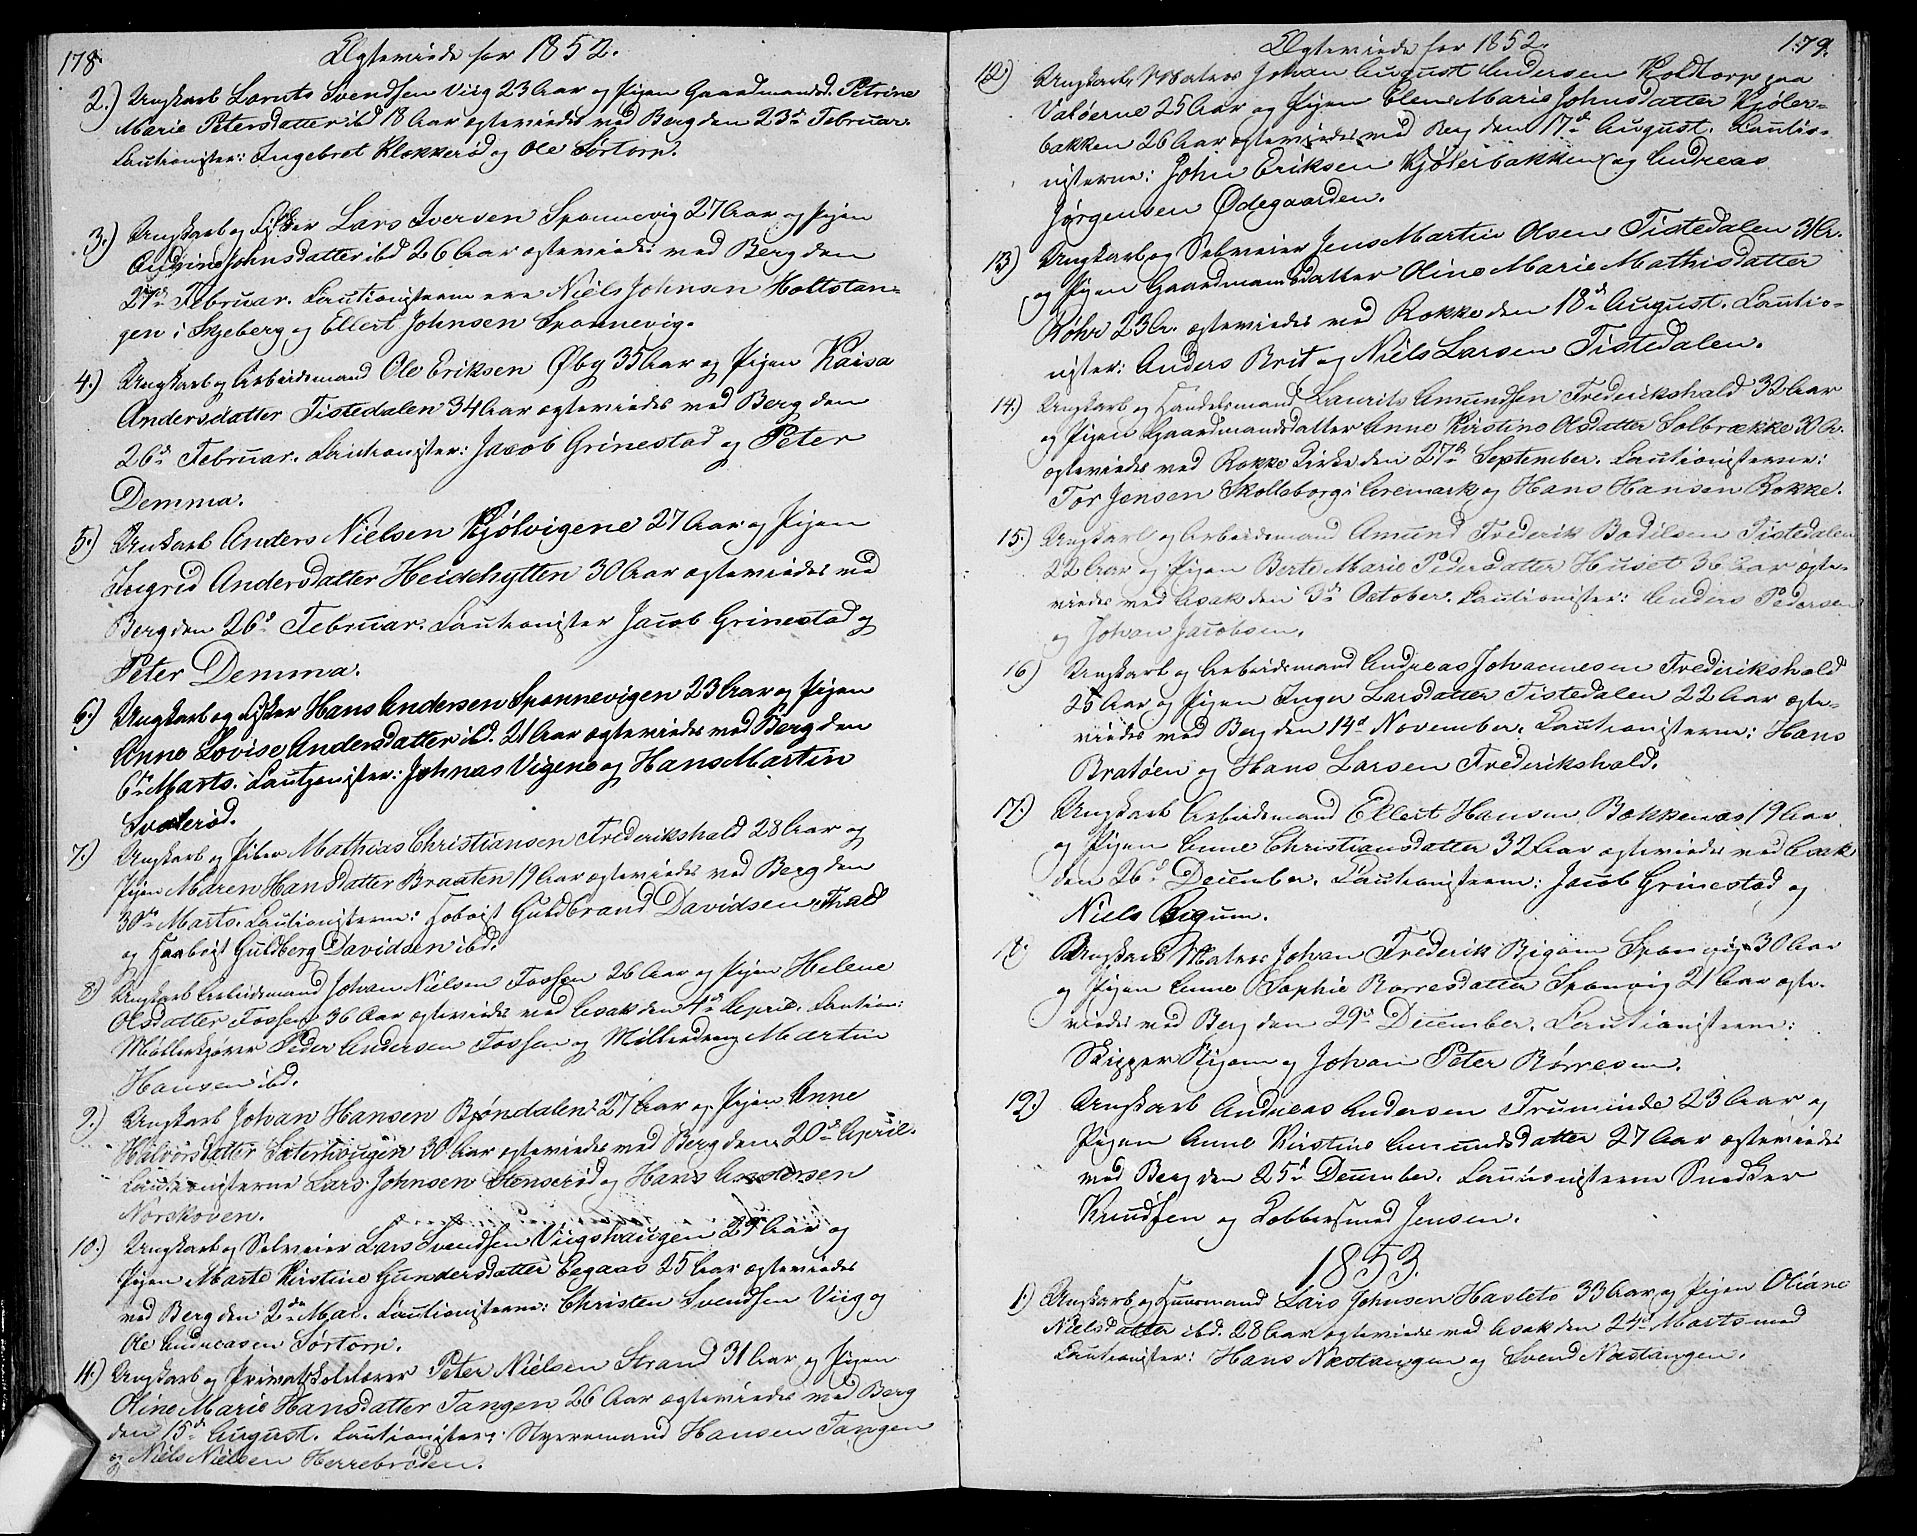 178
Ægteviede for 1852.
2.) Ungkarl Laruts Svendsen Viig 23 Aar og Pigen Gaardmandsd. Petrine
Marie Petersdatter ibd 18 Aar ægteviedes ved Berg den 23de Februar.
Cautionister: Ingebret Klokkerød og Ole Sørtorp.
3.) Ungkarl og Fisker Lars Iversen Sponnevig 27 Aar og Pigen
Andrine Johnsdatter ibd 26 Aar ægteviede ved Berg den
27de Februar. Cautionisterne ere Niels Johnsen Holtstan-
gen i Skjeberg og Ellert Johnsen Sponnevig.
4.) Ungkarl og Arbeidsmand Ole Eriksen Øby 35 Aar og Pigen Kaisa
Andersdatter Tistedalen 34 Aar ægteviedes ved Berg den
26de Februar. Cautionister: Jacob Grinestad og Peter
Demma.
5.) Unkarl Anders Nielsen Kjølvigene 27 Aar og Pigen
Ingrid Andersdatter Heidehytten 30 Aar ægteviedes ved
Berg den 26de Februar. Cautionister Jacob Grinestad og
Peter Demma.
6.) Ungkarl og Fisker Hans Andersen Sponnevigen 23 Aar og Pigen
Anne Lovise Andersdatter ibd. 21 Aar ægteviedes ved Berg den
6te Marts. Cautionister: Johnas Vigene og Hans Martin
Svalerød.
7.) Ungkarl og Mathias Christiansen Frederikshald 28 Aar og
Pigen Maren Hansdatter Braaten 19 Aar ægteviedes ved Berg den
30te Marts. Cautionisterne: Hoboist Guldbrand Davidsen Fhald
og Haaboist Guldberg Davidsen ibd.
8.) Ungkarl Arbeidsmand Johan Nielsen Fossen 26 Aar og Pigen Helene
Olsdatter Fossen 36 Aar ægteviedes ved Asak den 4de April. Caution:
Møllerkjører Peder Andersen Fossen og Møllerdreng Martin
Hansen ibd.
9.) Ungkarl Johan Hansen Bjøndalen 27 Aar og Pigen Anne
Halvorsdatter Sæterhaugen 30 Aar ægteviedes ved Berg den 20de April.
Cautionisterne Lars Johnsen Stenserød og Hans Andersen
Norskoven.
10.) Ungkarl og Selveier Lars Svendsen Viigshaugen 29 Aar og
Pigen Marte Kirstine Gundersdatter Eegaas 25 Aar ægteviedes
ved Berg den 2den Mai. Cautionisterne: Christen Svendsen Viig og
Ole Andreasen Sørtorp.
11.) Ungkarl og Privatskolelærer Peter Nielsen Strand 31 Aar og Pigen
Oline Marie Hansdatter Tangen 26 Aar ægteviedes ved Berg
den 15de August. Cautionister: Styrremand Hansen Tangen
og Niels Nielsen Herrebrøden.
Ægteviede for 1852.
179.
12.) Ungkarl Matros Johan August Andersen Holdtorp paa
Valøerne 25 Aar og Pigen Elen Marie Johnsdatter Kjøler-
bakken 26 Aar ægteviedes ved Berg den 17de August. Cautio-
nisterne: John Eriksen Kjølerbakken og Andreas
Jørgensen Ødegaarden.
13.) Ungkarl og Selveier Jens Martin Olsen Tistedalen 31 Ar.
og Pigen Gaardmandsdatter Oline Marie Mathisdatter
Røhr 23 A. ægteviedes ved Rokke den 18de August. Cautio-
nister: Anders Brit og Niels Larsen Tistedalen.
14.) Ungkarl og Handelsmand Laurits Amundsen Frederikshald 32 Aar
og Pigen Gaardmandsdatter Anne Kirstine Olsdatter Solbrække 30 A.
ægteviedes ved Rokke Kirke den 27de September. Cautionisterne:
Tor Jensen Skollsborg i Aremark og Hans Hansen Rokke.
15.) Ungkarl og Arbeidsmand Amund Frederik Bodilsen Tistedalen
22 Aar og Pigen Berte Marie Pedersdatter Huset 36 Aar ægte-
viedes ved Asak den 3de October. Cautionister: Anders Pedersen
og Johan Jacobsen.
16) Ungkarl og Arbeidsmand Andreas Johannesen Frederikshald
25 Aar og Pigen Inger Larsdatter Tistedalen 22 Aar ægte-
viedes ved Berg den 14de November. Cautionisterne: Hans
Bratøen og Hans Larsen Frederikshald.
17.) Ungkarl Arbeidsmand Ellert Hansen Bækkenæs 19 Aar
og Pigen Anne Christiansdatter 32 Aar ægteviedes ved Asak
den 26de December. Cautionisterne: Jacob Grinestad og
Niels Bigum.
18) Ungkarl Matros Johan Frederik Bigom Sponvig 30 Aar
og Pigen Anne Sophie Borresdatter Sponvig 21 Aar ægte-
viedes ved Berg den 29de December. Cautionisterne:
Skipper Bigom og Johan Peter Børresen.
19.) Ungkarl Andreas Andersen Truminde 23 Aar og
Pigen Anne Kirstine Amundsdatter 27 Aar ægteviedes
ved Berg den 25de December. Cautionisterne Snedker
Knudsen og Kobbersmed Jensen.
1853.
1.) Ungkarl og Huusmand Lars Johnsen Hasleto 33 Aar og Pigen Oliane
Nielsdatter ibd. 28 Aar ægteviede ved Asak den 24de Marts med
Cautionister: Hans Næstangen og Svend Næstangen.